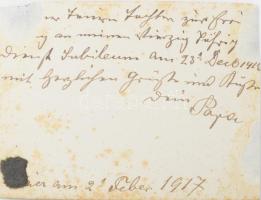 er Teuren Tochter zur Erin
g an meinen Vierzig Jährig
Dienst Jubileum am 23t Dec 1916
mit Herzlichen Grüße und Küße
Dein
Papa
am 2t Feber 1917